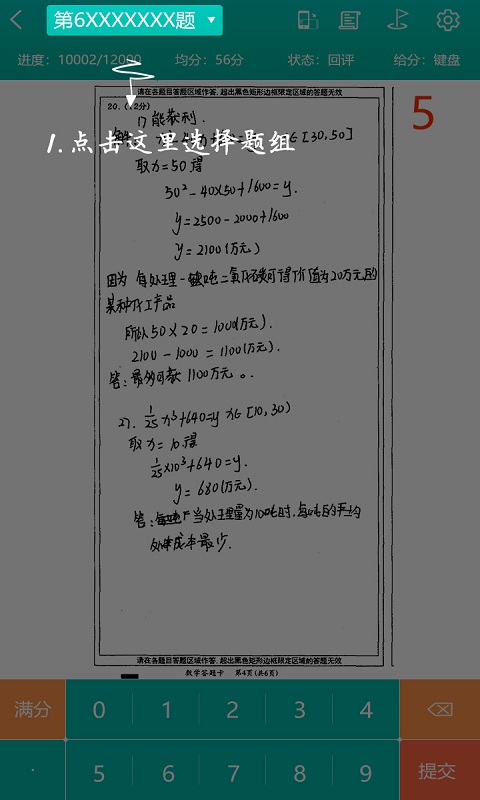 第6XXXXXXX题
进度：10002/12000 均分：56分 状态：回评 给分：键盘
请在各题目答题区域作答，超出黑色矩形边框限定区域的答题无效
20.(12分)
5
1.点击这里选择题组
1) 能获利.
x∈[30,50]
取x=50得
50²-40×50+1600=y.
y=2500-2000+1600
y=2100(万元)
因为 每处理一吨二氧化碳可得价值为20万元的
某种化工产品
所以50×20=1000(万元).
2100-1000=1100(万元).
答:最多可获1100万元。
2). 1/25 x³+640=y x∈[10,30)
取x=10得
1/25×10³+640=y.
y=680(万元).
答:当处理量为10吨时,每吨的平均
处理成本最少.
请在各题目答题区域作答，超出黑色矩形边框限定区域的答题无效
数学答题卡 第4页(共6页)
满分 0 1 2 3 4
. 5 6 7 8 9 提交